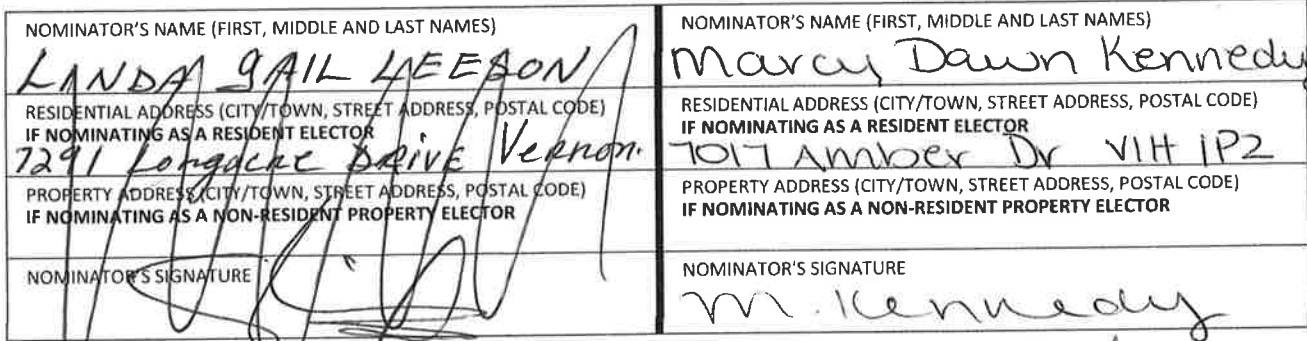 NOMINATOR'S NAME (FIRST, MIDDLE AND LAST NAMES)
LANDA GAIL LEESON
RESIDENTIAL ADDRESS (CITY/TOWN, STREET ADDRESS, POSTAL CODE)
IF NOMINATING AS A RESIDENT ELECTOR
7291 Longacre DRIVE Vernon.
PROPERTY ADDRESS (CITY/TOWN, STREET ADDRESS, POSTAL CODE)
IF NOMINATING AS A NON-RESIDENT PROPERTY ELECTOR
NOMINATOR'S SIGNATURE
NOMINATOR'S NAME (FIRST, MIDDLE AND LAST NAMES)
Marcy Dawn Kennedy
RESIDENTIAL ADDRESS (CITY/TOWN, STREET ADDRESS, POSTAL CODE)
IF NOMINATING AS A RESIDENT ELECTOR
7017 Amber Dr V1H 1P2
PROPERTY ADDRESS (CITY/TOWN, STREET ADDRESS, POSTAL CODE)
IF NOMINATING AS A NON-RESIDENT PROPERTY ELECTOR
NOMINATOR'S SIGNATURE
M. Kennedy